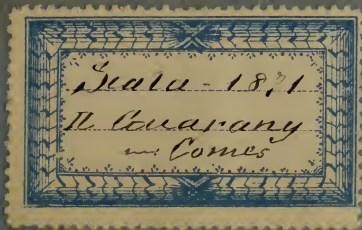 Scala - 1871.
Il Guarany
Gomes